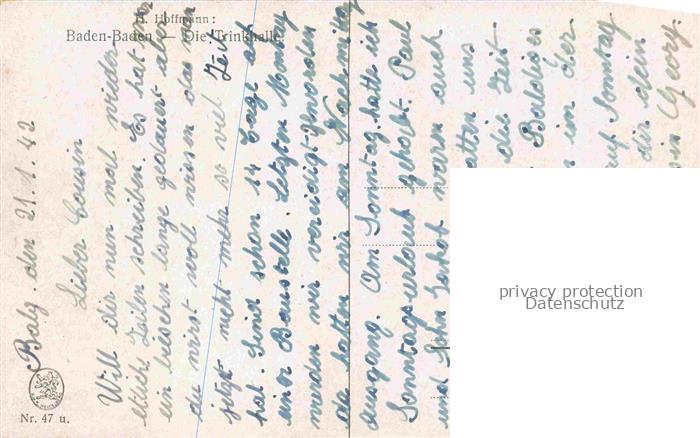 H. Hoffmann:
Baden-Baden — Die Trinkhalle
Balg. den 21.1.42
Lieber Cousin
Will dir nun mal wieder
etliche Zeilen schreiben. Es hat ja
ein bischen lange gedauert aber
du wirst woll wissen das man
jetzt nicht mehr so viel Zeit
hat. Sind schon 14 Tage auf
einer Baustelle. Letzten Montag
wurden wir vereidigt
da hatten wir am Nachmittag
Ausgang. Am Sonntag hatte ich
Sonntagsurlaub gehabt. Paul
und John waren auch
uns
die Zeit
Baldiges
im der
auf Sonntag
dir dein
Georg.
Nr. 47 u.
privacy protection
Datenschutz